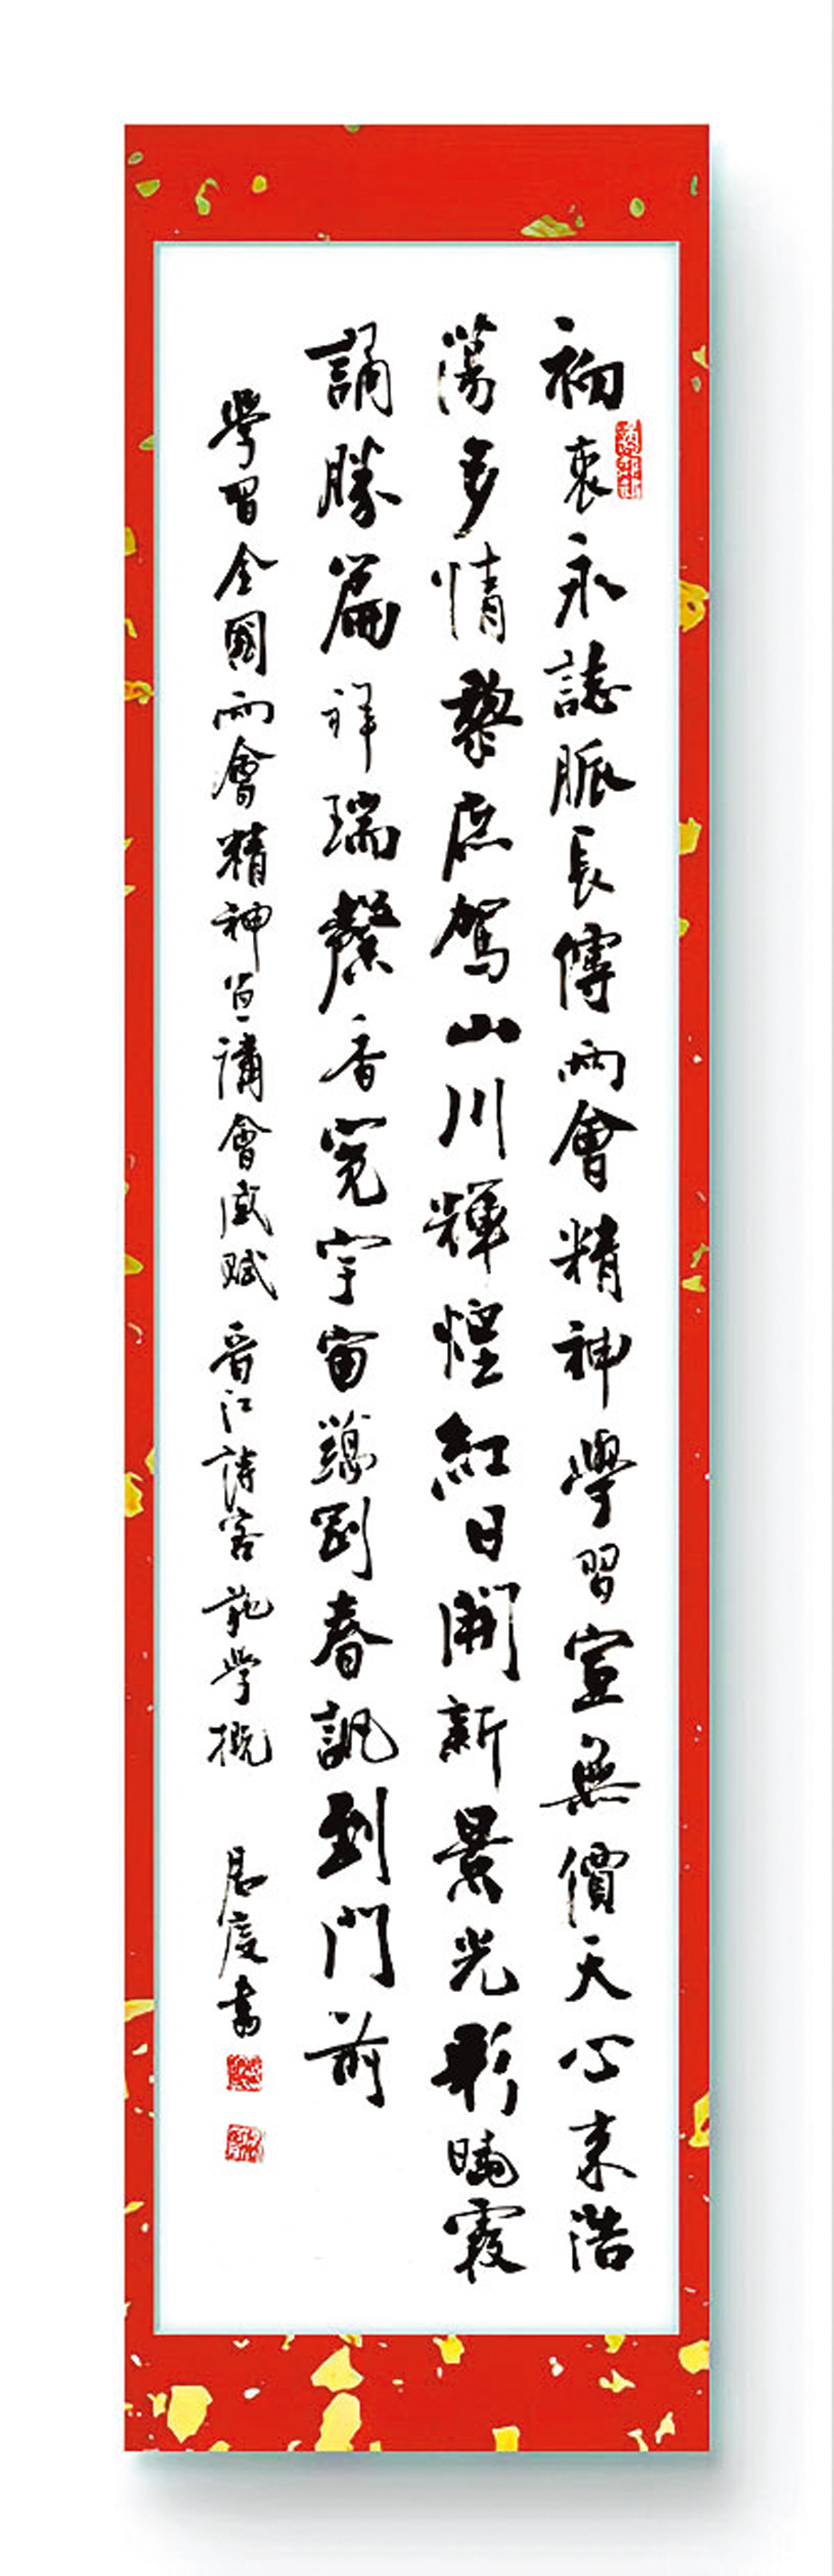 初衷永誌脈長傳兩會精神學習宣無價天心來浩
蕩多情黎庶駕山川輝煌紅日開新景光彩曉霞
誦勝篇祥瑞馨香寬宇宙春訊到門前
學習全國兩會精神宣講會感賦 晉江詩客 施學概 書